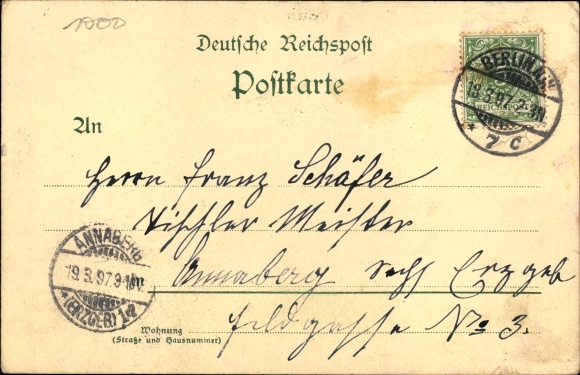 1000
Deutsche Reichspost
Postkarte
REICHSPOST
BERLIN N.W.
18.3.97. 2-3N.
* 7 c
An
Herrn Franz Schäfer
Tischler Meister
Annaberg Sachs Erzgeb
Feldgasse No 3.
ANNABERG
19.3.97. 9-10V.
*(ERZGEB.) 1
Wohnung
(Straße und Hausnummer)